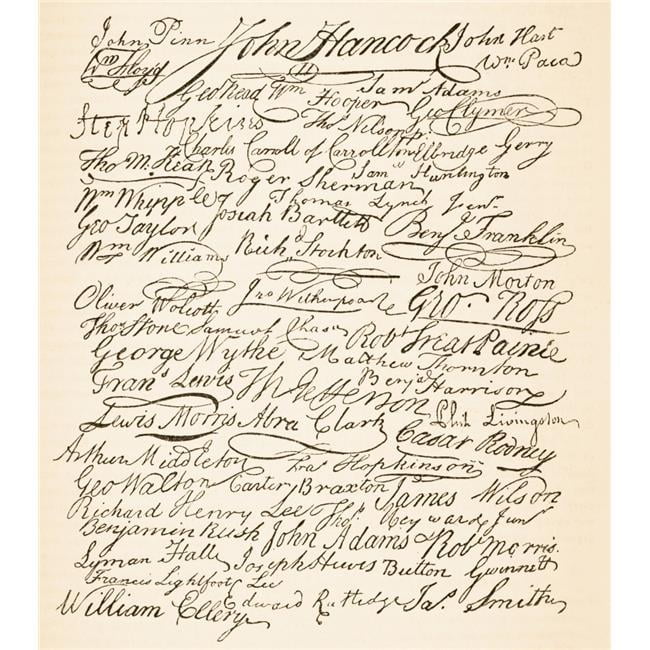 John Pinn John Hancock John Hast
Wm Floyd Wm. Paca
Geo Read Wm Hooper Saml Adams
Step Hopkins Thos Nelson jr. Geo Clymer
Charles Carroll of Carrollton Elbridge Gerry
Tho M. Kean Roger Sherman Sam Huntington
Wm Whipple Josiah Bartlett Thomas Lynch Junr
Geo Taylor Benj. Franklin
Wm Williams Richd Stockton
John Morton
Oliver Wolcott Jno Witherspoon Geo. Ross
Thos Stone Samuel Chase Robt Treat Paine
George Wythe Matthew Thornton
Frans Lewis Th Jefferson Benja Harrison
Lewis Morris Abra Clark Phil. Livingston
Caesar Rodney
Arthur Middleton Fras Hopkinson
Geo Walton Carter Braxton James Wilson
Richard Henry Lee Thos Heyward Junr
Benjamin Rush John Adams Robt Morris.
Lyman Hall Joseph Hewes Button Gwinnett
Francis Lightfoot Lee
William Ellery Edward Rutledge Jas. Smith